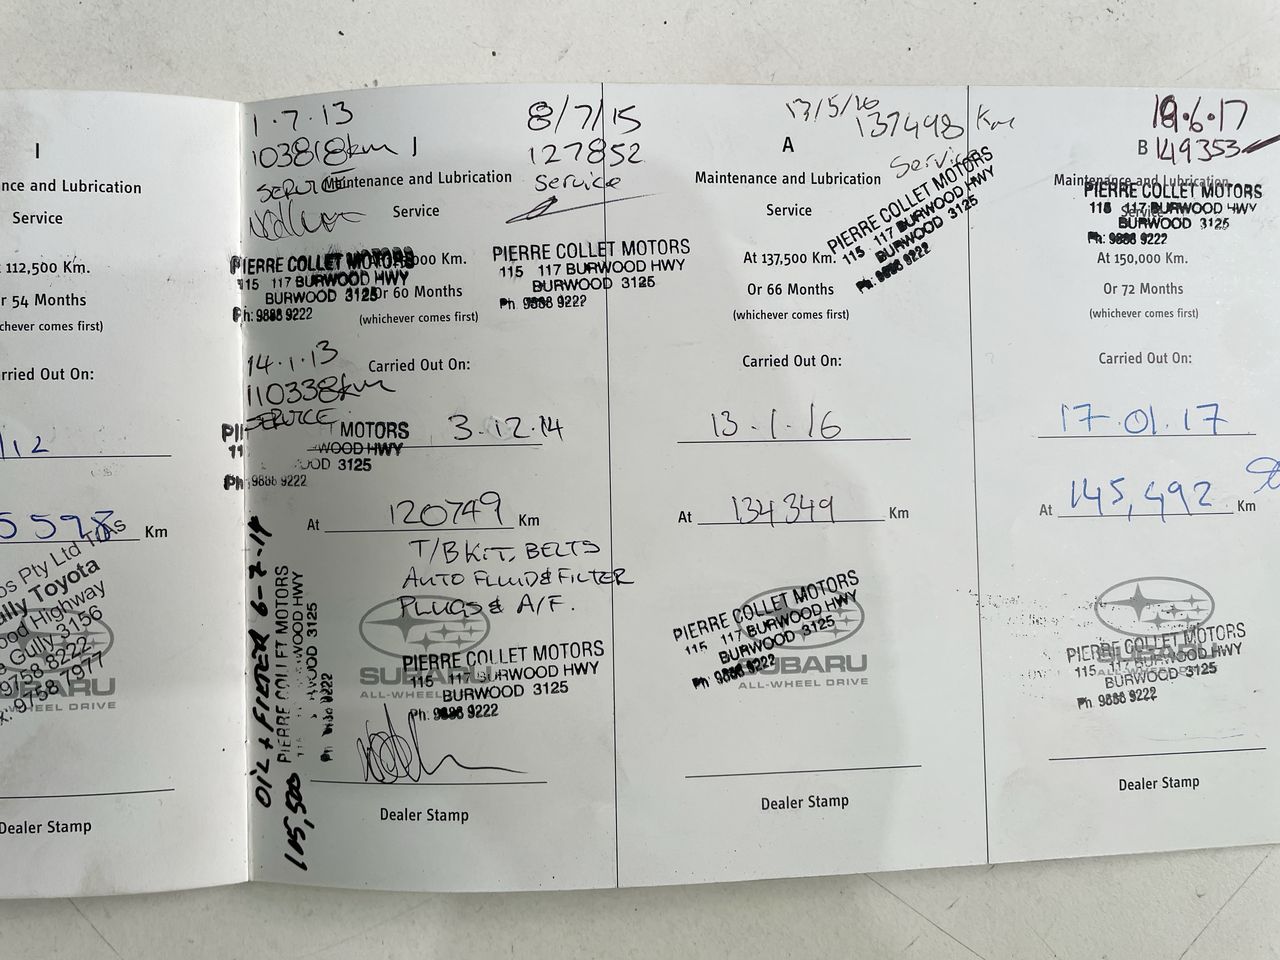 I
nce and Lubrication
Service
112,500 Km.
r 54 Months
chever comes first)
rried Out On:
/12
5598 Km
os Pty Ltd T/As
ully Toyota
ood Highway
Gully 3156
9758 8222
x: 9758 7977
SUBARU
WHEEL DRIVE
Dealer Stamp
1.7.13
103818km
SERVICE
I
Maintenance and Lubrication
Service
PIERRE COLLET MOTORS
115 117 BURWOOD HWY
BURWOOD 3125
Ph: 9888 9222
000 Km.
Or 60 Months
(whichever comes first)
8/7/15
127852
Service
PIERRE COLLET MOTORS
115 117 BURWOOD HWY
BURWOOD 3125
Ph 9888 9222
14.1.13
110338km
SERVICE
MOTORS
WOOD HWY
OOD 3125
Ph: 9888 9222
Carried Out On:
3.12.14
At 120749 Km
T/B KIT, BELTS
AUTO FLUID & FILTER
PLUGS & A/F.
OIL + FILTER 6-2-14
105,500
PIERRE COLLET MOTORS
WOOD HWY
WOOD 3125
SUBARU
ALL-WHEEL
PIERRE COLLET MOTORS
115 117 BURWOOD HWY
BURWOOD 3125
Ph: 9888 9222
Dealer Stamp
13/5/16
137498 Km
Service
A
Maintenance and Lubrication
Service
At 137,500 Km.
Or 66 Months
(whichever comes first)
PIERRE COLLET MOTORS
115 117 BURWOOD HWY
BURWOOD 3125
Ph: 9888 9222
Carried Out On:
13.1.16
At 134349 Km
PIERRE COLLET MOTORS
115 117 BURWOOD HWY
BURWOOD 3125
Ph: 9888 9222
SUBARU
ALL-WHEEL DRIVE
Dealer Stamp
19.6.17
B 149353
Maintenance and Lubrication
Service
PIERRE COLLET MOTORS
115 117 BURWOOD HWY
BURWOOD 3125
Ph: 9888 9222
At 150,000 Km.
Or 72 Months
(whichever comes first)
Carried Out On:
17.01.17
At 145,492 Km
PIERRE COLLET MOTORS
115 117 BURWOOD HWY
BURWOOD 3125
Ph 9888 9222
Dealer Stamp